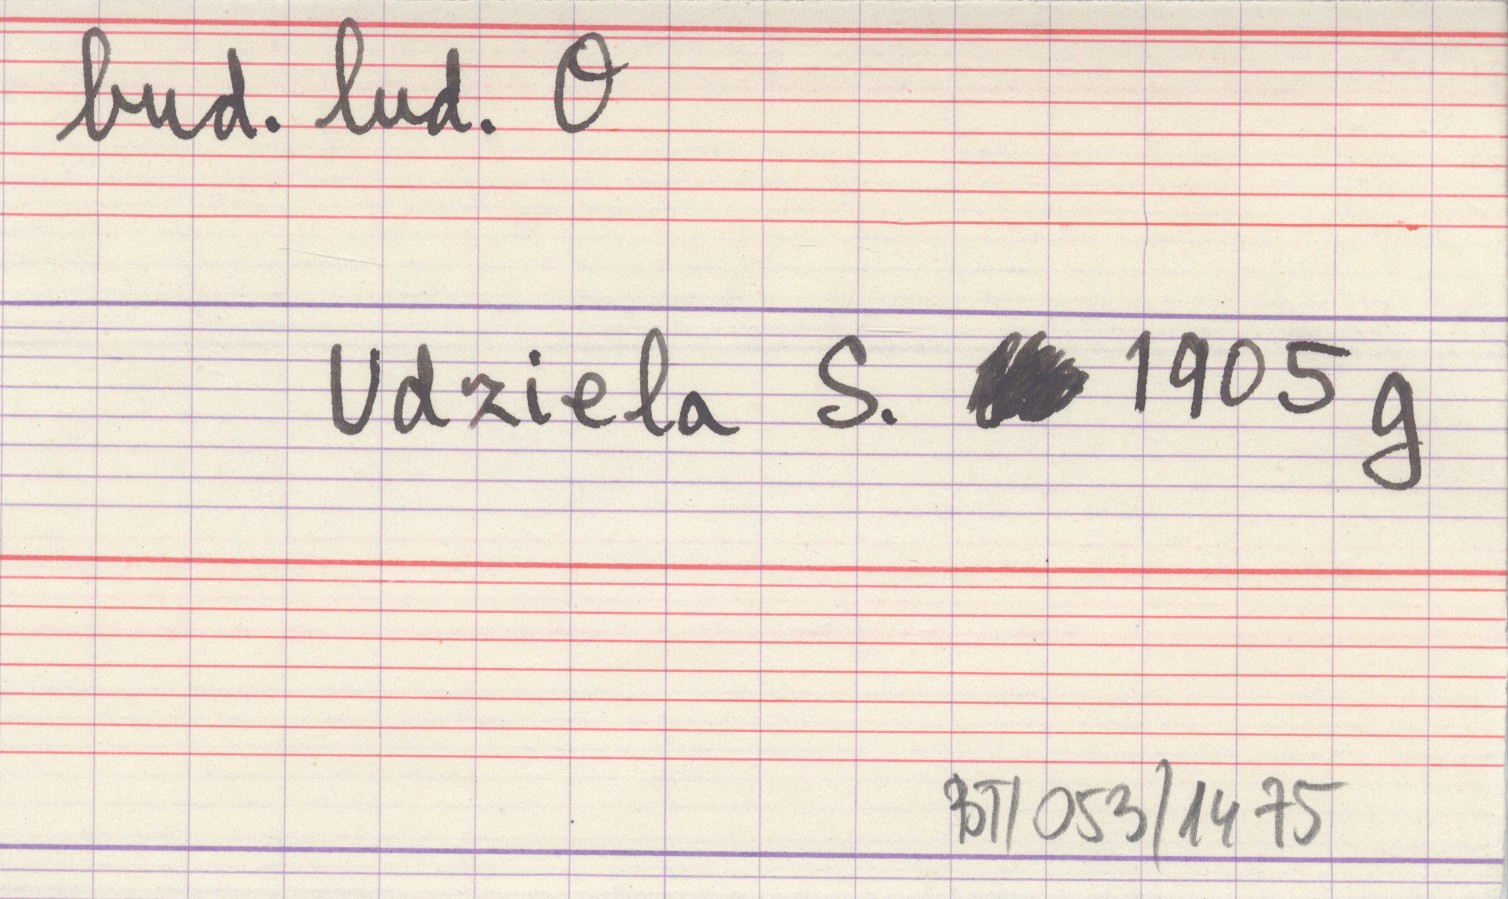 bud. lud. O
Udziela S. 1905 g
BT/053/1475